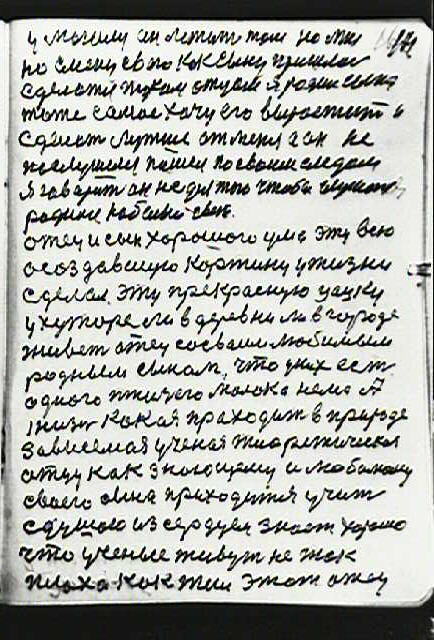 у могилу он летит там но мы
на смену ево как сыну пришлос
сделати такам отцом я родил сына
тоже самое хочу его вырастит и
сделат лутше от меня а он не
послушался пошел по своим следам
Я гаварит он не для тово чтобы слушат
родился на белый свет.
отец и сын хорошого ума эту всю
осоздавшую картину у жизни
сделал. эту прекрасную цацку
у хуторе ли в деревни ли в городе
живет отец со своим любимым
родным сыном, что у них ест
одного птичего молока нема А
жизн какая праходит в природе
зависемая ученая тиаретическая
отцу как знающему и любимому
своего сына приходится учит
с душою из сердцем знает хорошо
что ученые живут не так
плоха как тии этот отец